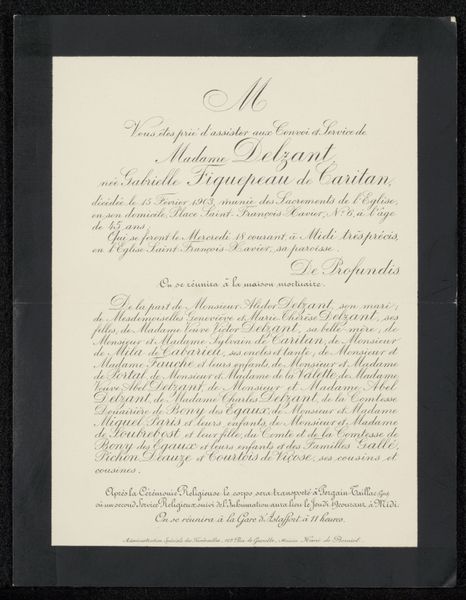 M
Vous êtes prié d'assister aux Convoi et Service de
Madame Delzant,
née Gabrielle Figuepeau de Caritan,
décédée le 15 Février 1903, munie des Sacrements de l'Eglise,
en son domicile, Place Saint-François-Xavier, N° 6, à l'âge
de 45 ans,
Qui se feront le Mercredi 18 courant, à Midi très précis,
en l'Eglise Saint-François-Xavier, sa paroisse.
De Profundis
On se réunira à la maison mortuaire.
De la part de Monsieur Alidor Delzant, son mari;
de Mesdemoiselles Geneviève et Marie-Thérèse Delzant, ses
filles, de Madame Veuve Victor Delzant, sa belle-mère; de
Monsieur et Madame Sylvain de Caritan, de Monsieur
de Mila de Cabarieu, ses oncles et tante; de Monsieur et
Madame Fauche et leurs enfants, de Monsieur et Madame
de Portal, de Monsieur et Madame de la Valette, de Madame
Veuve Abel Delzant, de Monsieur et Madame Abel
Delzant, de Madame Charles Delzant, de la Comtesse
Douairière de Bony des Egaux, de Monsieur et Madame
Miguel Paris et leurs enfants, de Monsieur et Madame
de Loutrebost et leur fille, du Comte et de la Comtesse de
Bony des Egaux et leurs enfants et des Familles Gallé,
Pechon, Deauze et Courtois de Viçose, ses cousins et
cousines.
Après la Cérémonie Religieuse le corps sera transporté à Pergain-Taillac (Gers)
où un second Service Religieux suivi de l'Inhumation aura lieu le Jeudi 19 courant à Midi.
On se réunira à la Gare d'Astaffort à 11 heures.
Administration Spéciale des Funérailles, Rue de Grenelle, Maison Henri de Borniol.